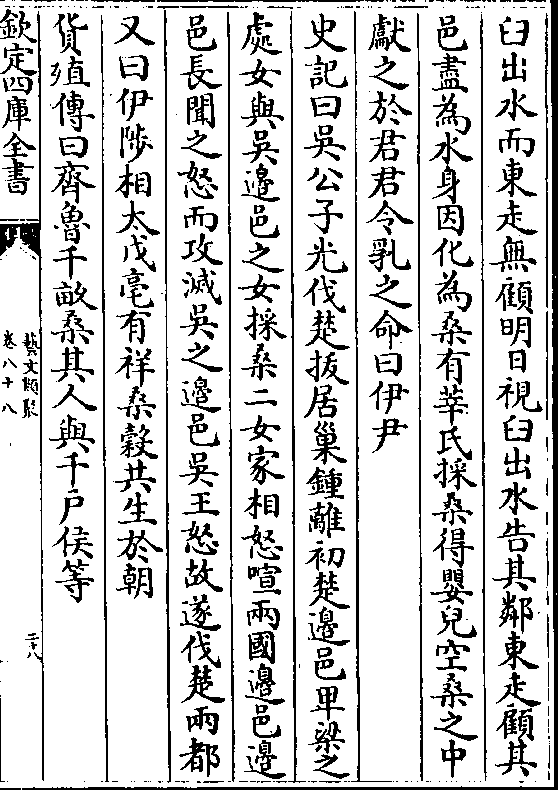 臼出水而東走無顧明日視臼出水告其鄰東走顧其
邑盡為水身因化為桑有莘氏採桑得嬰兒空桑之中
獻之於君君令乳之命曰伊尹
史記曰吳公子光伐楚拔居巢鍾離初楚邊邑卑梁之
處女與吳邊邑之女採桑二女家相怒喧兩國邊邑邊
邑長聞之怒而攻滅吳之邊邑吳王怒故遂伐楚兩都
又曰伊陟相太戊亳有祥桑榖共生於朝
貨殖傳曰齊魯千畝桑其人與千户侯等
欽定四庫全書
藝文類聚
卷八十八
二八